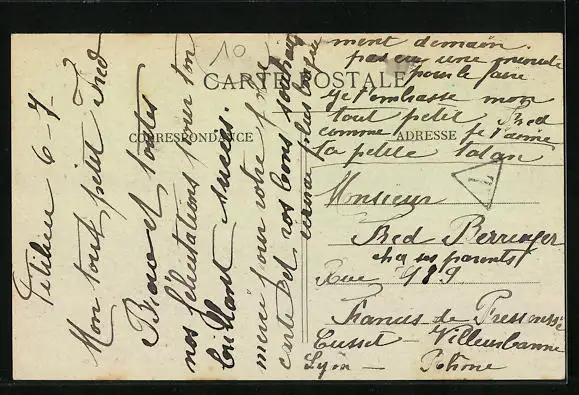 10
CARTE POSTALE
CORRESPONDANCE
ADRESSE
6-7
Mon tout petit Fred
Bravo et toutes
nos félicitations pour ton
brillant succès.
merci pour votre
carte et vos bons souhaits
ment demain.
pas eu une minute
pour le faire
Je t'embrasse mon
tout petit Fred
comme je t'aime
ta petite
T
Monsieur
Fred Berringer
chez ses parents
Rue 989
Francis de Pressensé
Cusset - Villeurbanne
Lyon - Rhône